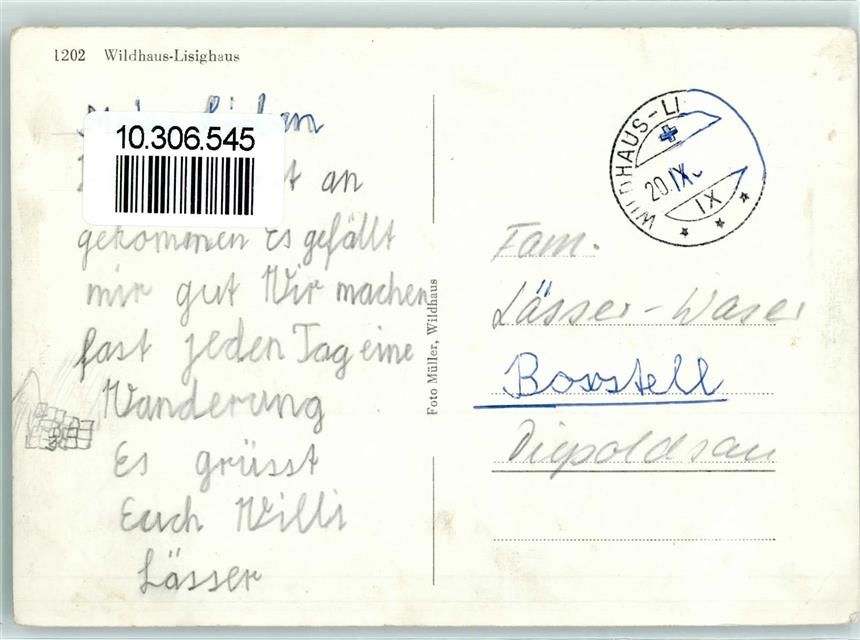 1202 Wildhaus-Lisighaus
10.306.545
an
gekommen Es gefällt
mir gut Wir machen
fast jeden Tag eine
Wanderung
Es grüsst
Euch Willi
Lässer
Foto Müller, Wildhaus
WILDHAUS-LI
20.IX.
IX
Fam.
Lässer-Waser
Boxstell
Diepoldsau